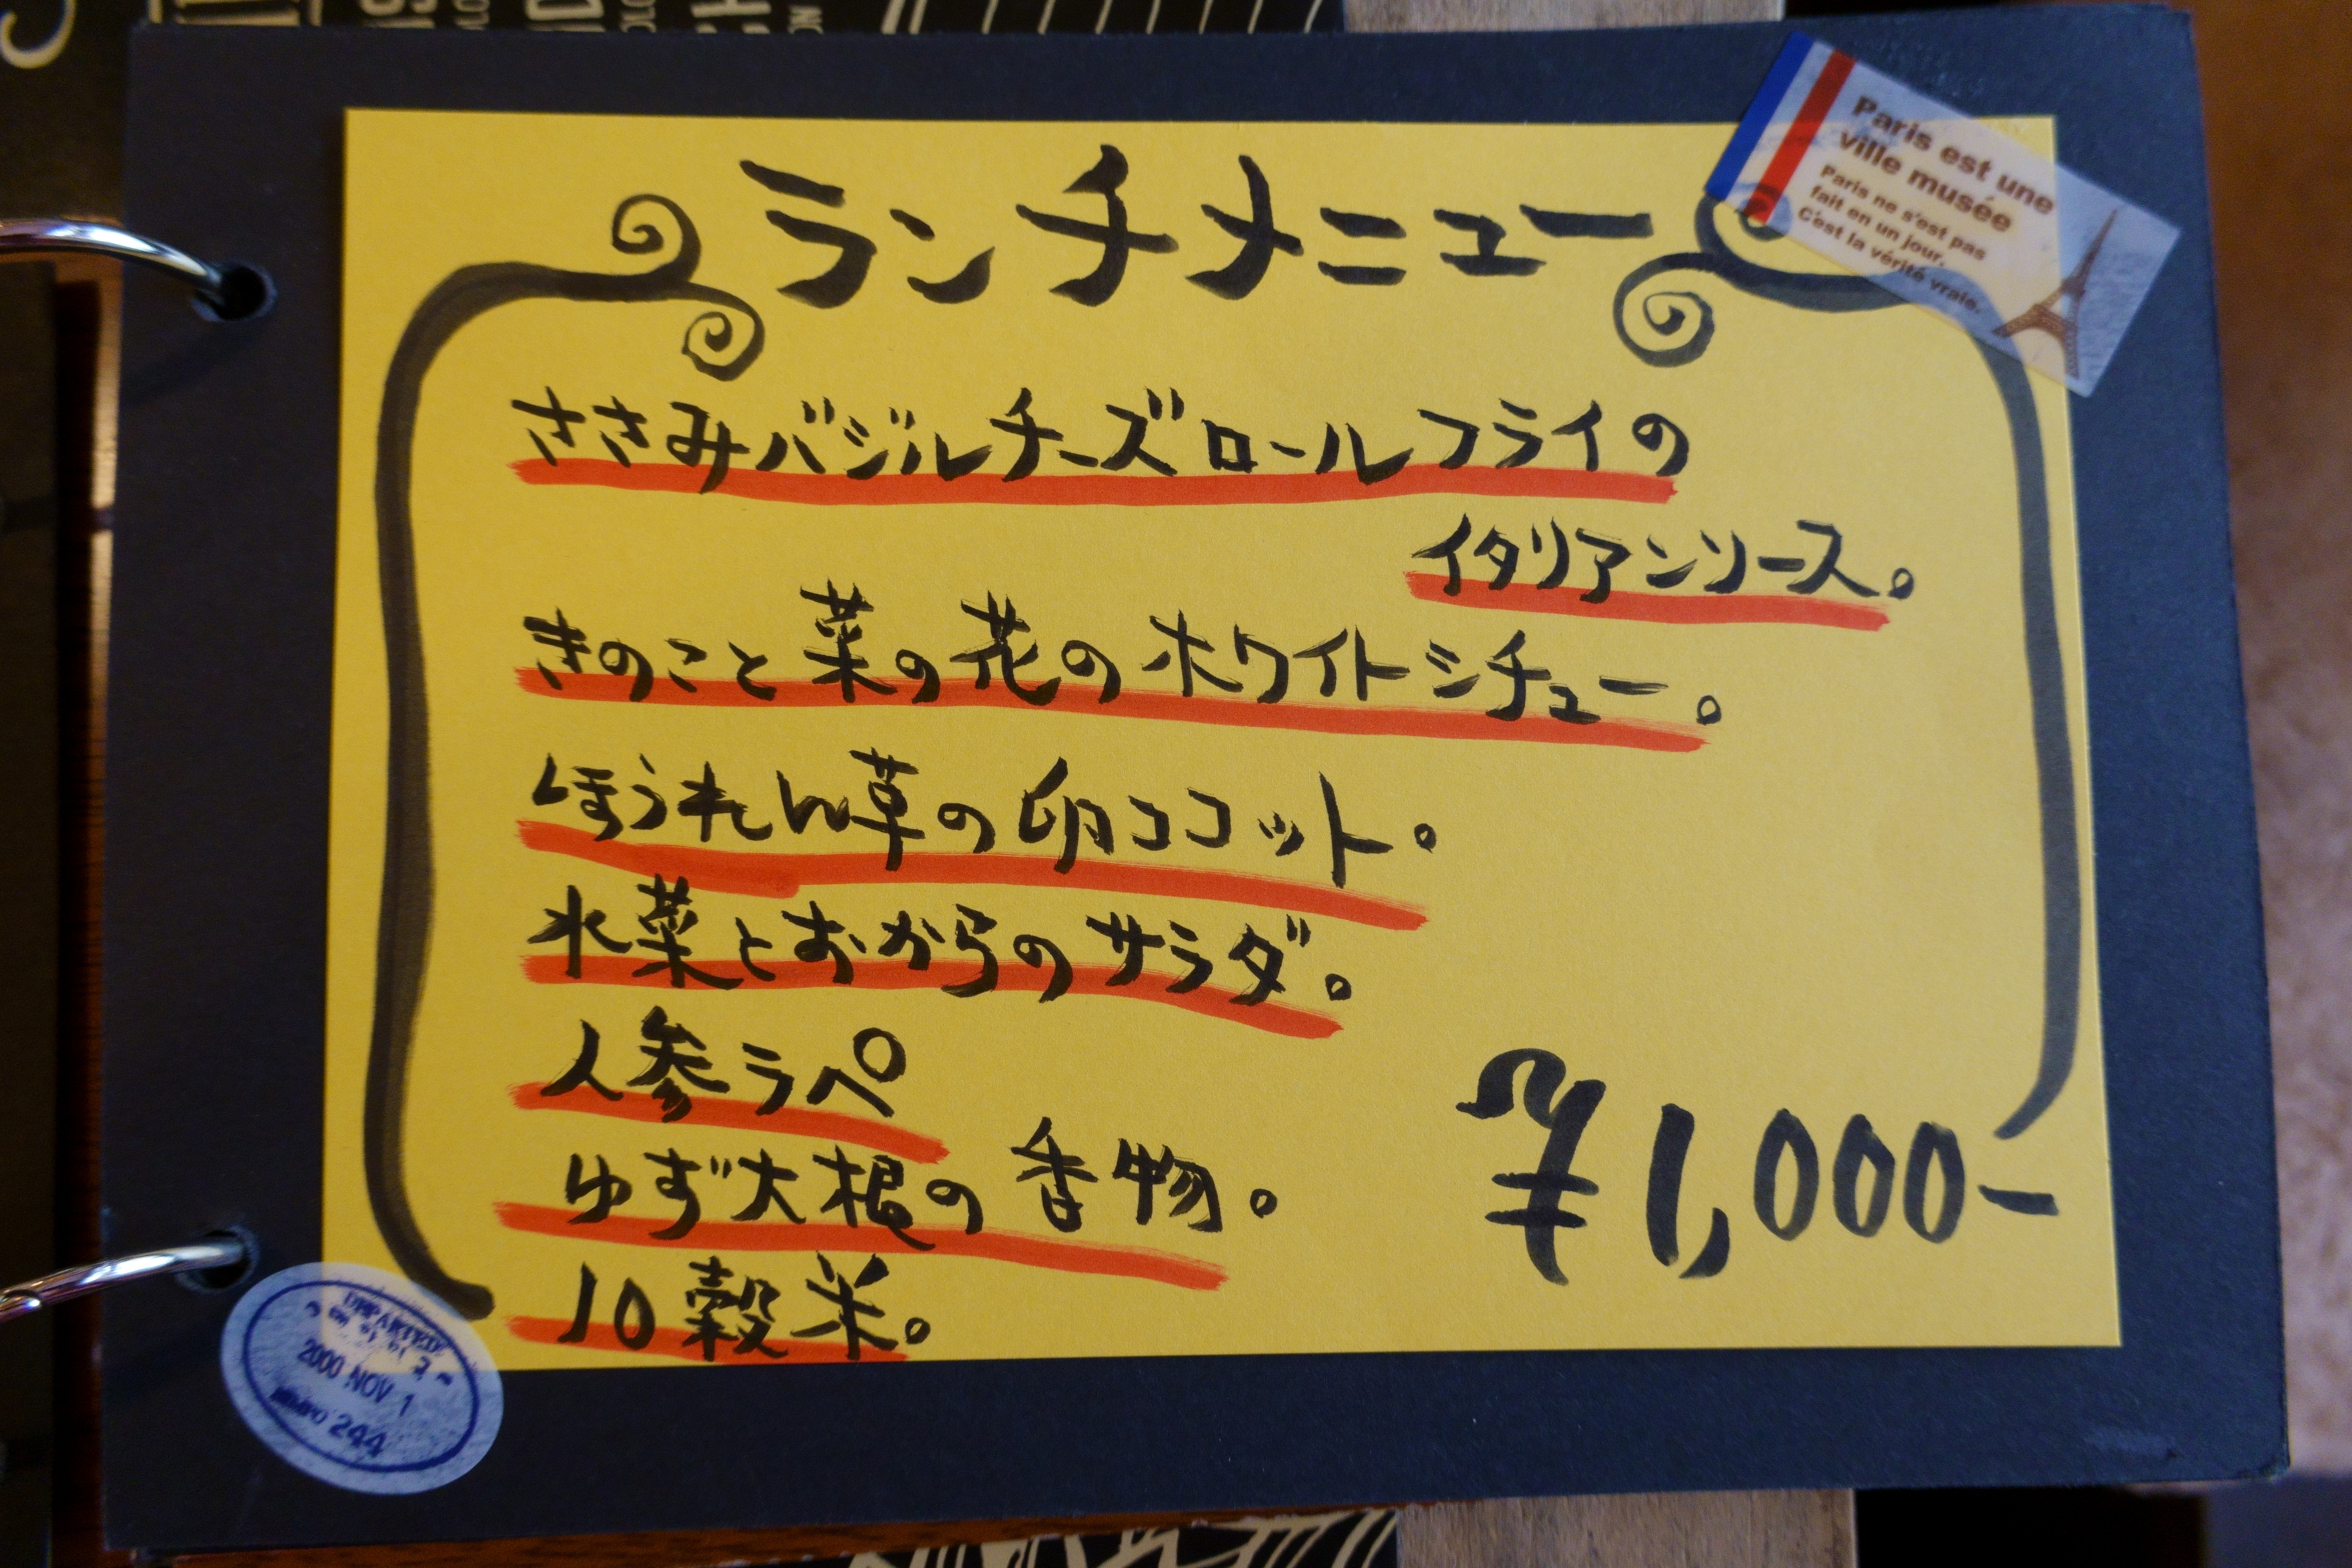 ランチメニュー
Paris est une
ville musée
Paris ne s'est pas
fait en un jour.
C'est la vérité vraie.
ささみバジルチーズロールフライの
イタリアンソース。
きのこと菜の花のホワイトシチュー。
ほうれん草の卵ココット。
水菜とおからのサラダ。
人参ラペ
ゆず大根の香物。
10穀米。
¥1,000-
2000 NOV 1
244